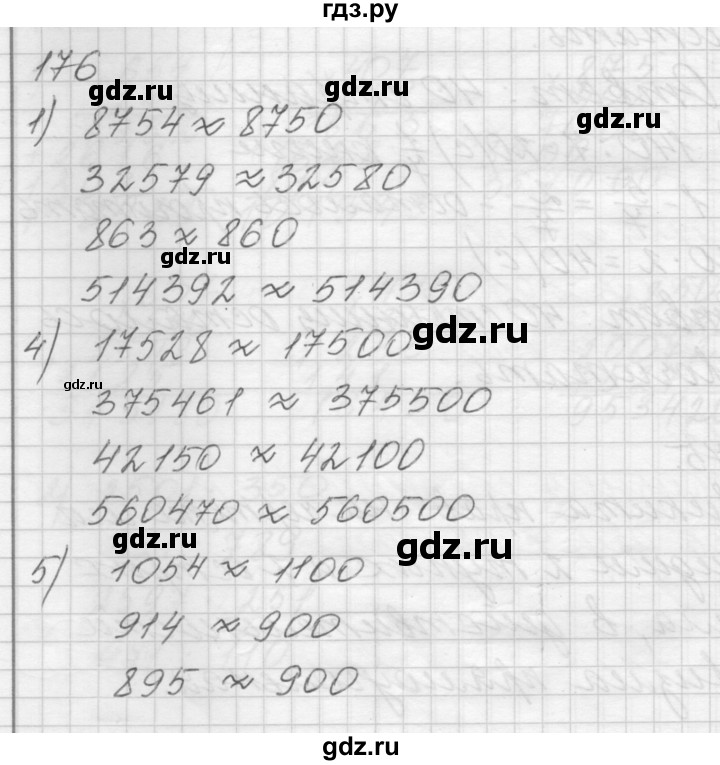 гдз.ру
176
gdz.ru
gdz.ru
1) 8754 ≈ 8750
gdz.ru
32579 ≈ 32580
863 ≈ 860
gdz.ru
514392 ≈ 514390
4) 17528 ≈ 17500
gdz.ru
gdz.ru
375461 ≈ 375500
42150 ≈ 42100
560470 ≈ 560500
gdz.ru
gdz.ru
5) 1054 ≈ 1100
914 ≈ 900
895 ≈ 900
gdz.ru